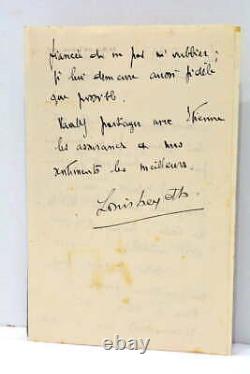 fiancée de ne pas m'oublier ;
je lui demeure aussi fidèle
que possible.
Veuillez partager avec Etienne
les assurances de mes
sentiments les meilleurs.
Louis
057192.com